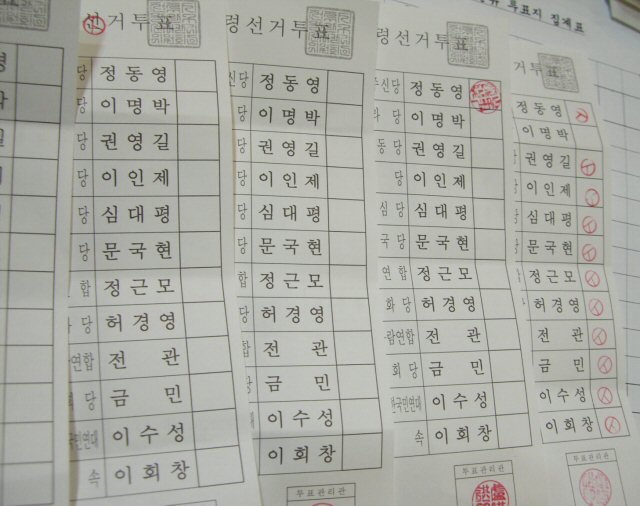 선거투표
당 정동영
당 이명박
당 권영길
당 이인제
당 심대평
당 문국현
합 정근모
당 허경영
연합 전 관
당 금 민
국민연대 이수성
속 이회창
령선거투표
신당 정동영
당 이명박
당 권영길
당 이인제
당 심대평
당 문국현
합 정근모
당 허경영
합 전 관
당 금 민
이수성
이회창
투표관리관
령선거투표
신당 정동영
당 이명박
동당 권영길
당 이인제
심당 심대평
국당 문국현
연합 정근모
화당 허경영
람연합 전 관
회당 금 민
한국민연대 이수성
속 이회창
투표관리관
거투표
정동영
이명박
당 권영길
이인제
당 심대평
당 문국현
합 정근모
당 허경영
전 관
금 민
이수성
이회창
투표관리관
투표지 집계표